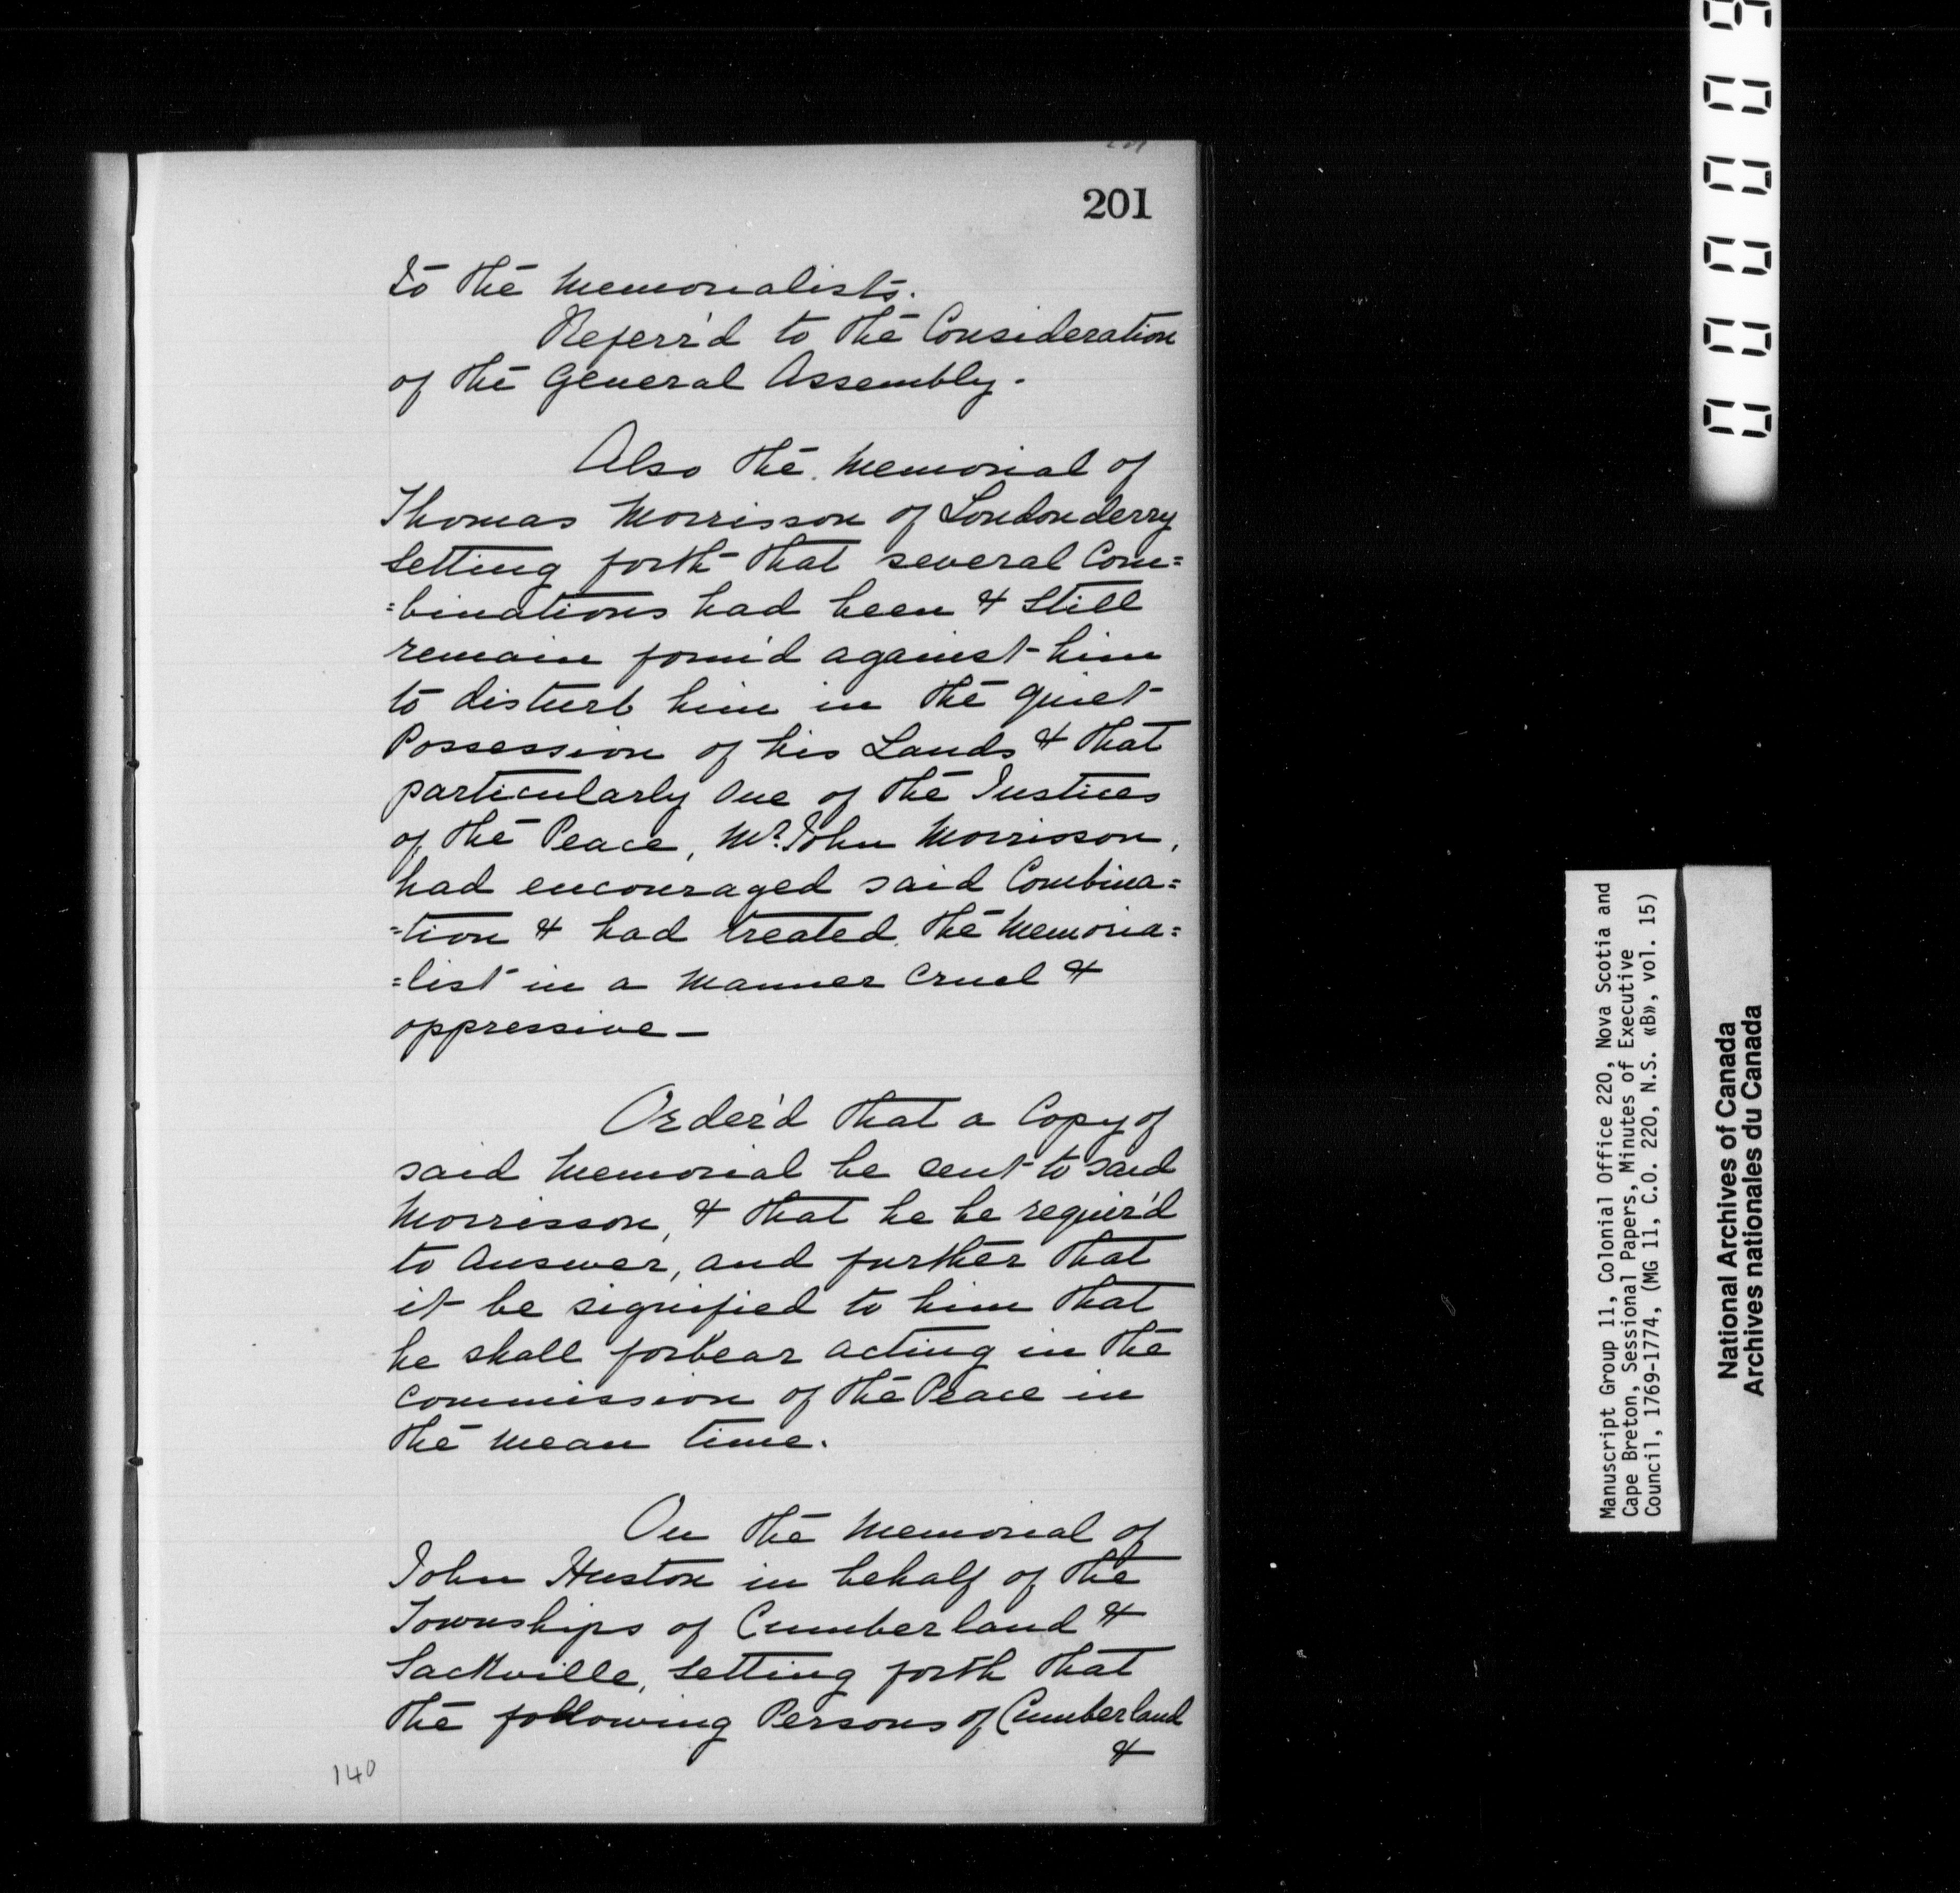 201
to the Memorialists.
Referr'd to the Consideration
of the General Assembly.
Also the Memorial of
Thomas Morrisson of Londonderry
Setting forth that several Com=
=binations had been & Still
remain form'd against him
to disturb him in the quiet
Possession of his Lands & that
particularly One of the Justices
of the Peace, Mr. John Morrisson,
had encouraged said Combina=
=tion & had treated the Memoria=
=list in a manner Cruel &
oppressive—
Order'd that a Copy of
said Memorial be sent to said
Morrisson, & that he be requir'd
to Answer, and further that
it be signified to him that
he shall forbear acting in the
Commission of the Peace in
the mean time.
On the Memorial of
John Huston in behalf of the
Townships of Cumberland &
Sackville, Setting forth that
the following Persons of Cumberland
&
140
Manuscript Group 11, Colonial Office 220, Nova Scotia and
Cape Breton, Sessional Papers, Minutes of Executive
Council, 1769-1774, (MG 11, C.O. 220, N.S. «B», vol. 15)
National Archives of Canada
Archives nationales du Canada